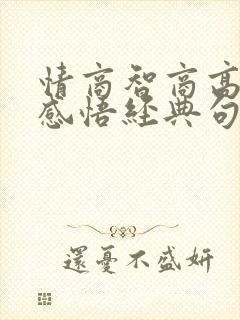 情商智商高
感悟經典句
還憂不盛妍